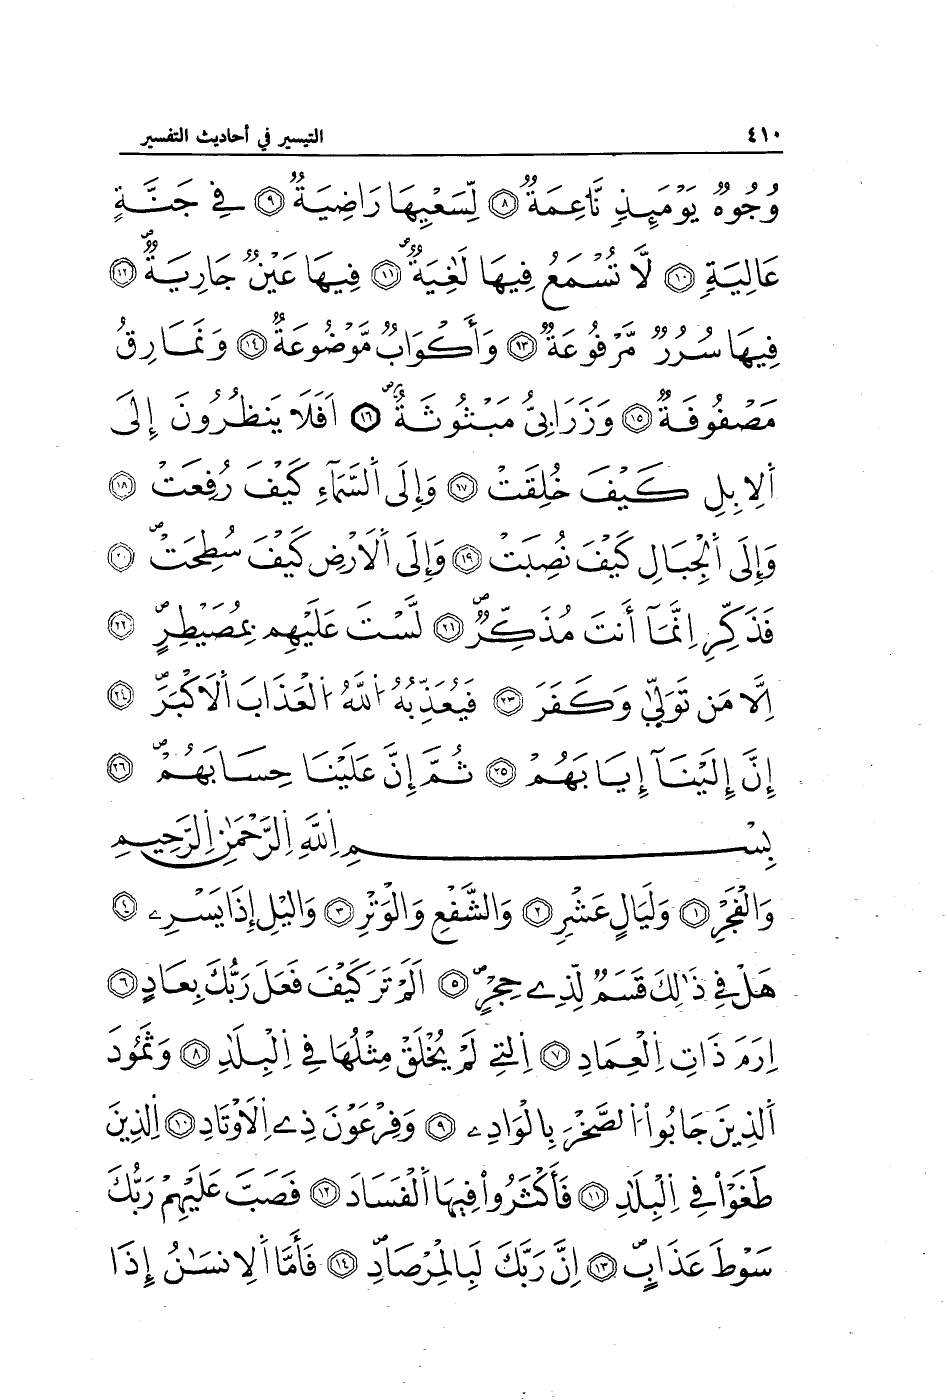 ٤١٠ التيسير في أحاديث التفسير
وُجُوهٌ يَوْمَئِذٍ نَّاعِمَةٌ ⑧ لِّسَعْيِهَا رَاضِيَةٌ ⑨ فِي جَنَّةٍ
عَالِيَةٍ ⑩ لَّا تُسْمَعُ فِيهَا لَٰغِيَةٌ ⑪ فِيهَا عَيْنٌ جَارِيَةٌ ⑫
فِيهَا سُرُرٌ مَّرْفُوعَةٌ ⑬ وَأَكْوَابٌ مَّوْضُوعَةٌ ⑭ وَنَمَارِقُ
مَصْفُوفَةٌ ⑮ وَزَرَابِيُّ مَبْثُوثَةٌ ⑯ اَفَلَا يَنظُرُونَ إِلَى
اَلِابِلِ كَيْفَ خُلِقَتْ ⑰ وَإِلَى اَلسَّمَآءِ كَيْفَ رُفِعَتْ ⑱
وَإِلَى اَلْجِبَالِ كَيْفَ نُصِبَتْ ⑲ وَإِلَى اَلَارْضِ كَيْفَ سُطِحَتْ ⑳
فَذَكِّرِ اِنَّمَآ أَنتَ مُذَكِّرٌ ㉑ لَّسْتَ عَلَيْهِم بِمُصَيْطِرٍ ㉒
اِلَّا مَن تَوَلَّىٰ وَكَفَرَ ㉓ فَيُعَذِّبُهُ اُللَّهُ اُلْعَذَابَ اَلَاكْبَرَ ㉔
إِنَّ إِلَيْنَآ إِيَابَهُمْ ㉕ ثُمَّ إِنَّ عَلَيْنَا حِسَابَهُمْ ㉖
بِسْمِ اِللَّهِ اِلرَّحْمَٰنِ اِلرَّحِيمِ
وَالْفَجْرِ ① وَلَيَالٍ عَشْرٍ ② وَالشَّفْعِ وَالْوَتْرِ ③ وَالَيْلِ إِذَا يَسْرِۦ ④
هَلْ فِي ذَٰلِكَ قَسَمٌ لِّذِے حِجْرٍ ⑤ اَلَمْ تَرَ كَيْفَ فَعَلَ رَبُّكَ بِعَادٍ ⑥
اِرَمَ ذَاتِ اِلْعِمَادِ ⑦ اِلتِي لَمْ يُخْلَقْ مِثْلُهَا فِي اِلْبِلَٰدِ ⑧ وَثَمُودَ
اَلذِينَ جَابُواْ اُلصَّخْرَ بِالْوَادِۦ ⑨ وَفِرْعَوْنَ ذِے اِلَاوْتَادِ ⑩ اِلذِينَ
طَغَوْاْ فِي اِلْبِلَٰدِ ⑪ فَأَكْثَرُواْ فِيهَا اَلْفَسَادَ ⑫ فَصَبَّ عَلَيْهِمْ رَبُّكَ
سَوْطَ عَذَابٍ ⑬ اِنَّ رَبَّكَ لَبِالْمِرْصَادِ ⑭ فَأَمَّا اَلِانسَٰنُ إِذَا